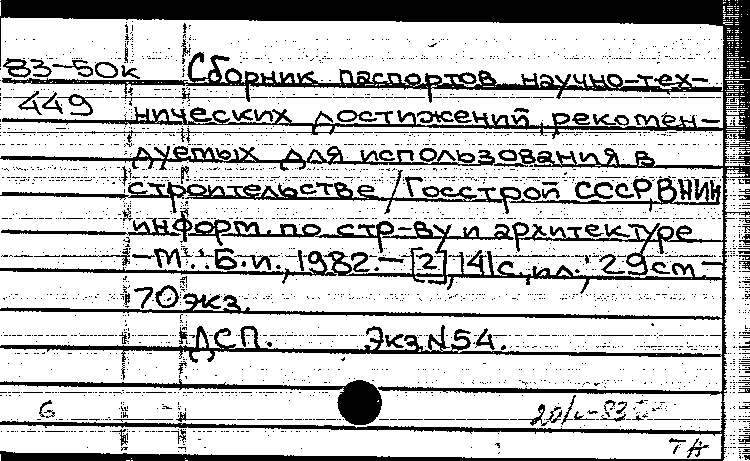 83-50к Сборник паспортов научно-тех-
449 нических достижений, рекомен-
дуемых для использования в
строительстве / Госстрой СССР, ВНИИ
информ. по стр-ву и архитектуре
- М.: Б.и., 1982. - [2], 141 с., ил.; 29 см. -
70 экз.
ДСП. Экз N 54.
6
ТА